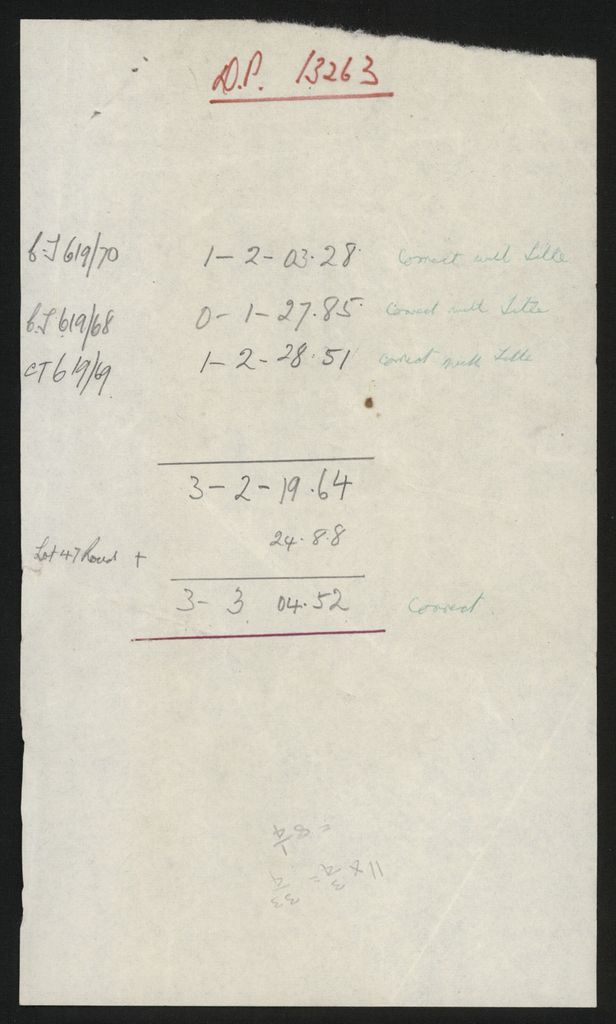 D.P. 13263
C.T 619/70 1 - 2 - 03.28 Correct with Title
C.T 619/68 0 - 1 - 27.85 Correct with Title
CT 619/69 1 - 2 - 28.51 Correct with Title
3 - 2 - 19.64
Lot 47 Road + 24.88
3 - 3 04.52 Correct.
11 x 3/4 = 33/4
= 8 1/4